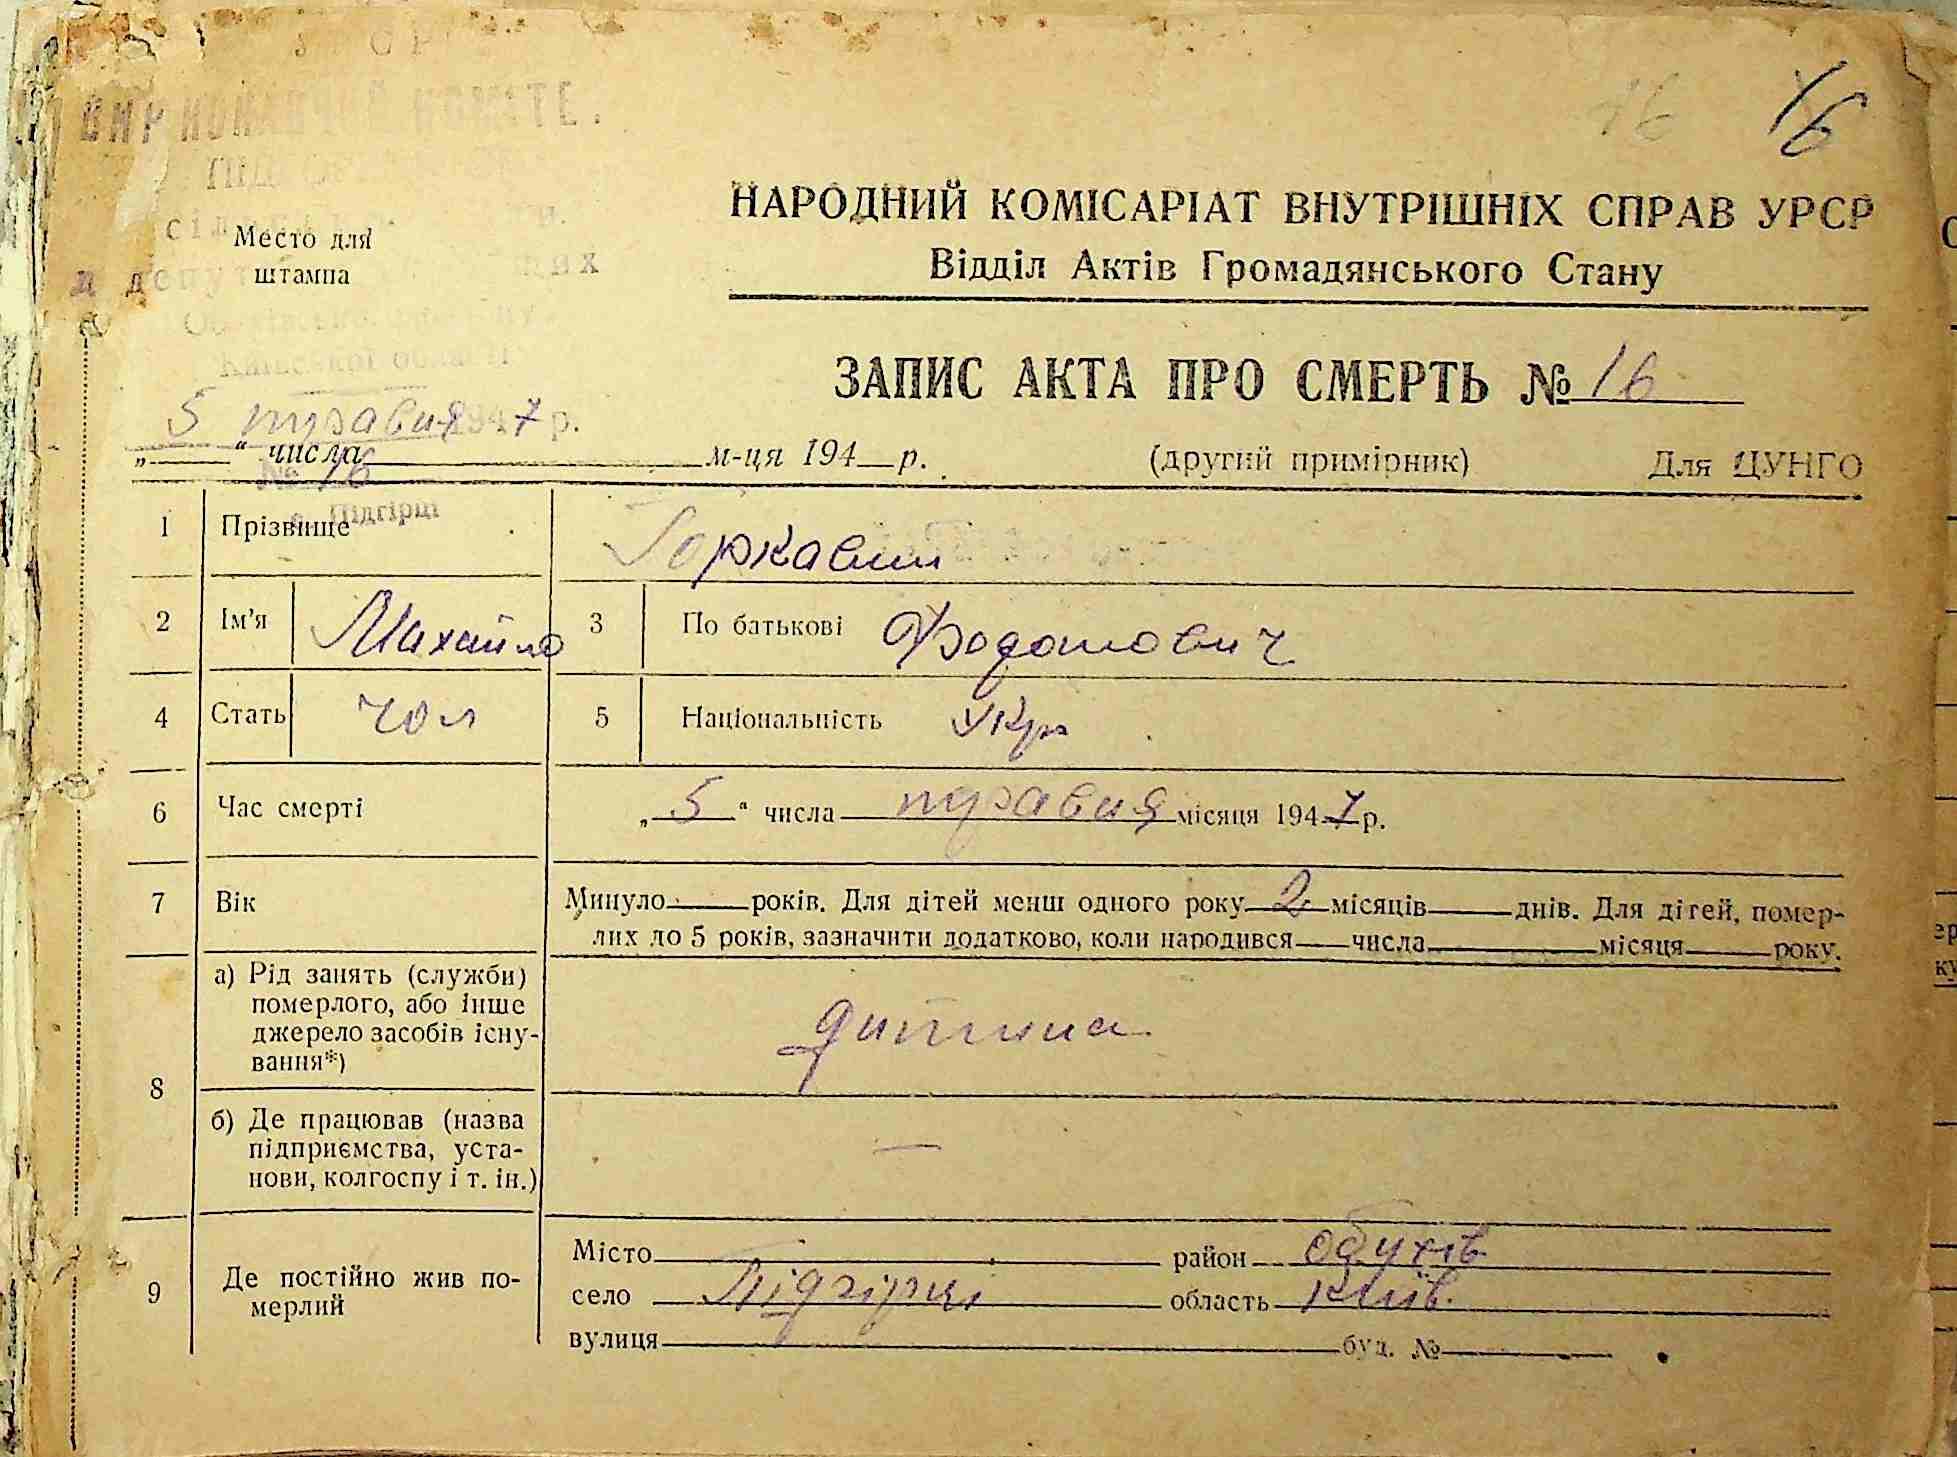 16 16
ВИКОНАВЧИЙ КОМІТЕ.
НАРОДНИЙ КОМІСАРІАТ ВНУТРІШНІХ СПРАВ УРСР
Відділ Актів Громадянського Стану
Место для
штампа
Київської області
ЗАПИС АКТА ПРО СМЕРТЬ № 16
5 травня 1947 р.
„ “ числа м-ця 194 р. (другий примірник) Для ЦУНГО
№ 16
с. Підгірці
1 Прізвище Горкавий
2 Ім'я Михайло 3 По батькові Федотович
4 Стать чол 5 Національність Укр
6 Час смерті „ 5 “ числа травня місяця 1947 р.
7 Вік Минуло років. Для дітей менш одного року 2 місяців днів. Для дітей, помер-
лих до 5 років, зазначити додатково, коли народився числа місяця року.
8 а) Рід занять (служби)
померлого, або інше
джерело засобів існу-
вання*) дитина
б) Де працював (назва
підприємства, уста-
нови, колгоспу і т. ін.) —
9 Де постійно жив по-
мерлий
Місто район Обухів
село Підгірці область Київ.
вулиця буд. №